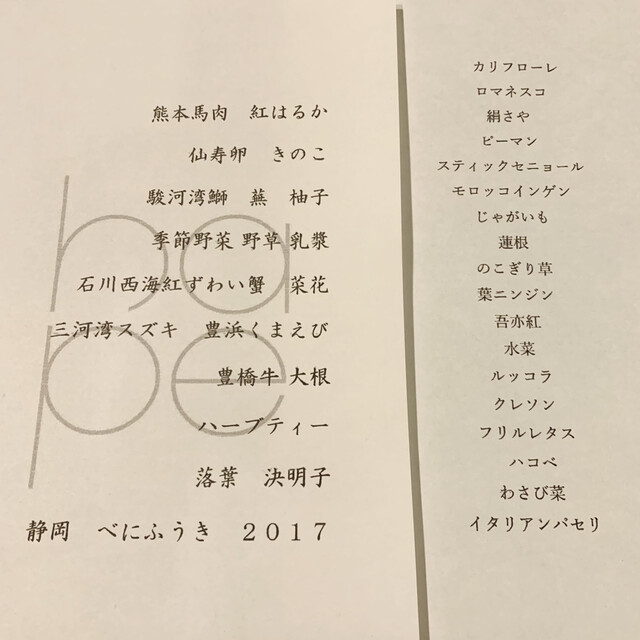 ha
pe
熊本馬肉　紅はるか
仙寿卵　きのこ
駿河湾鰤　蕪　柚子
季節野菜 野草 乳漿
石川西海紅ずわい蟹　菜花
三河湾スズキ　豊浜くまえび
豊橋牛 大根
ハーブティー
落葉　決明子
静岡　べにふうき　２０１７
カリフローレ
ロマネスコ
絹さや
ピーマン
スティックセニョール
モロッコインゲン
じゃがいも
蓮根
のこぎり草
葉ニンジン
吾亦紅
水菜
ルッコラ
クレソン
フリルレタス
ハコベ
わさび菜
イタリアンパセリ